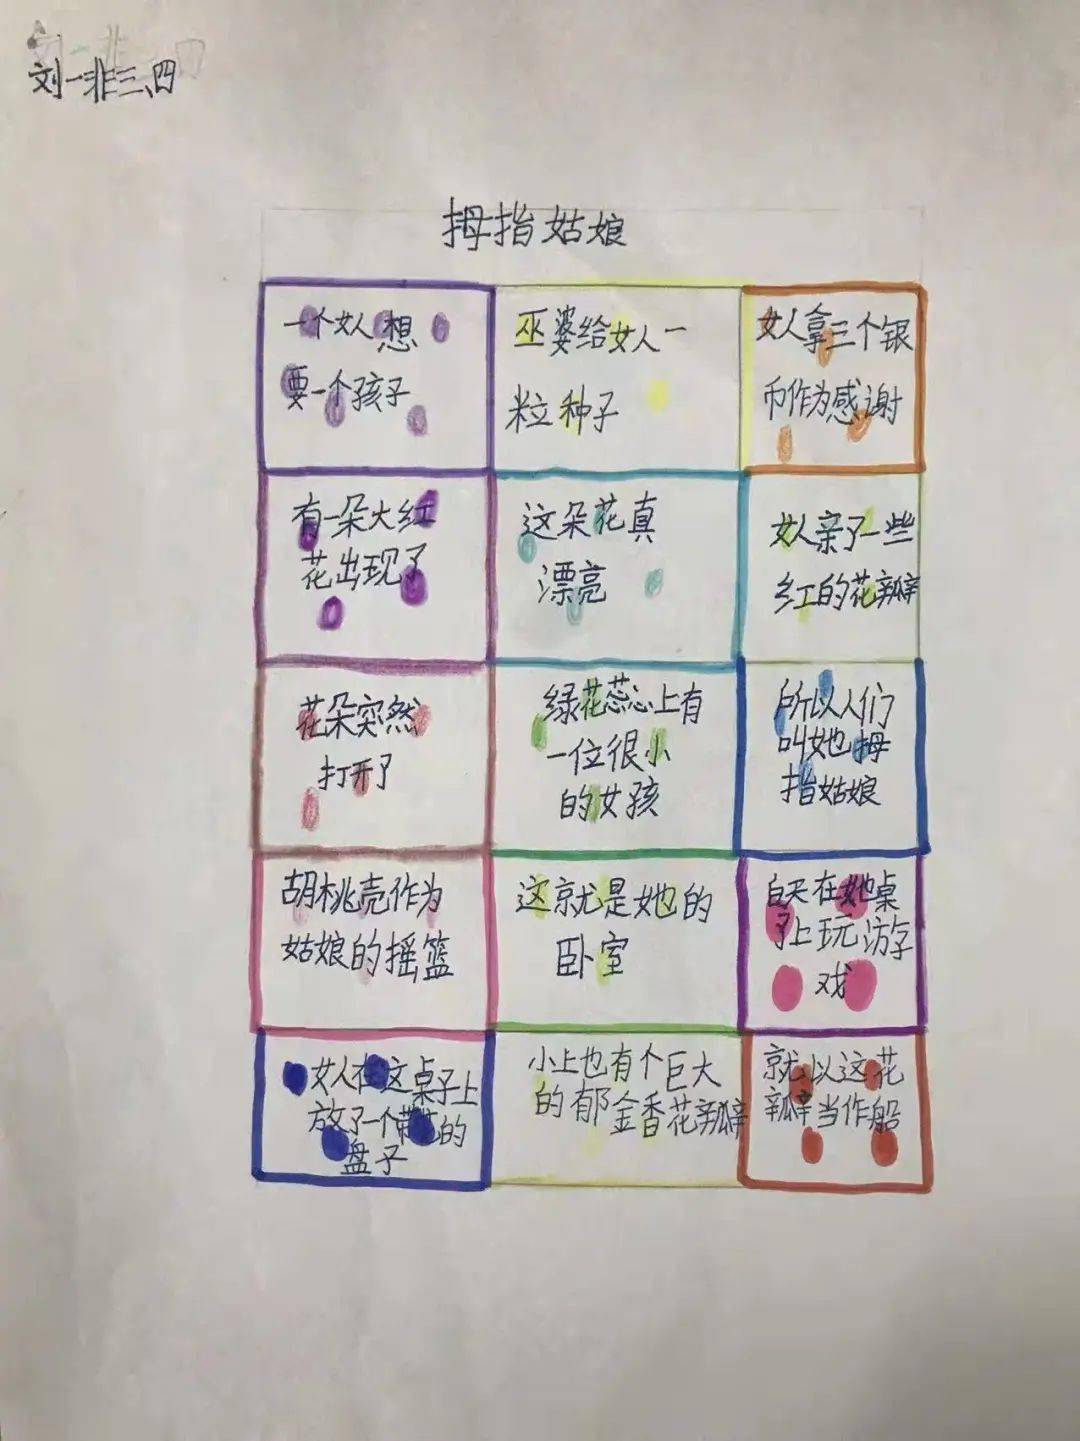 刘一非三、四
拇指姑娘
一个女人想
要一个孩子
巫婆给女人一
粒种子
女人拿三个银
币作为感谢
有一朵大红
花出现了
这朵花真
漂亮
女人亲了一些
红的花瓣
花朵突然
打开了
绿花蕊心上有
一位很小
的女孩
所以人们
叫她拇
指姑娘
胡桃壳作为
姑娘的摇篮
这就是她的
卧室
白天在她桌
子上玩游
戏
女人在这桌子上
放了一个带花的
盘子
小上也有个巨大
的郁金香花瓣
就以这花
瓣当作船